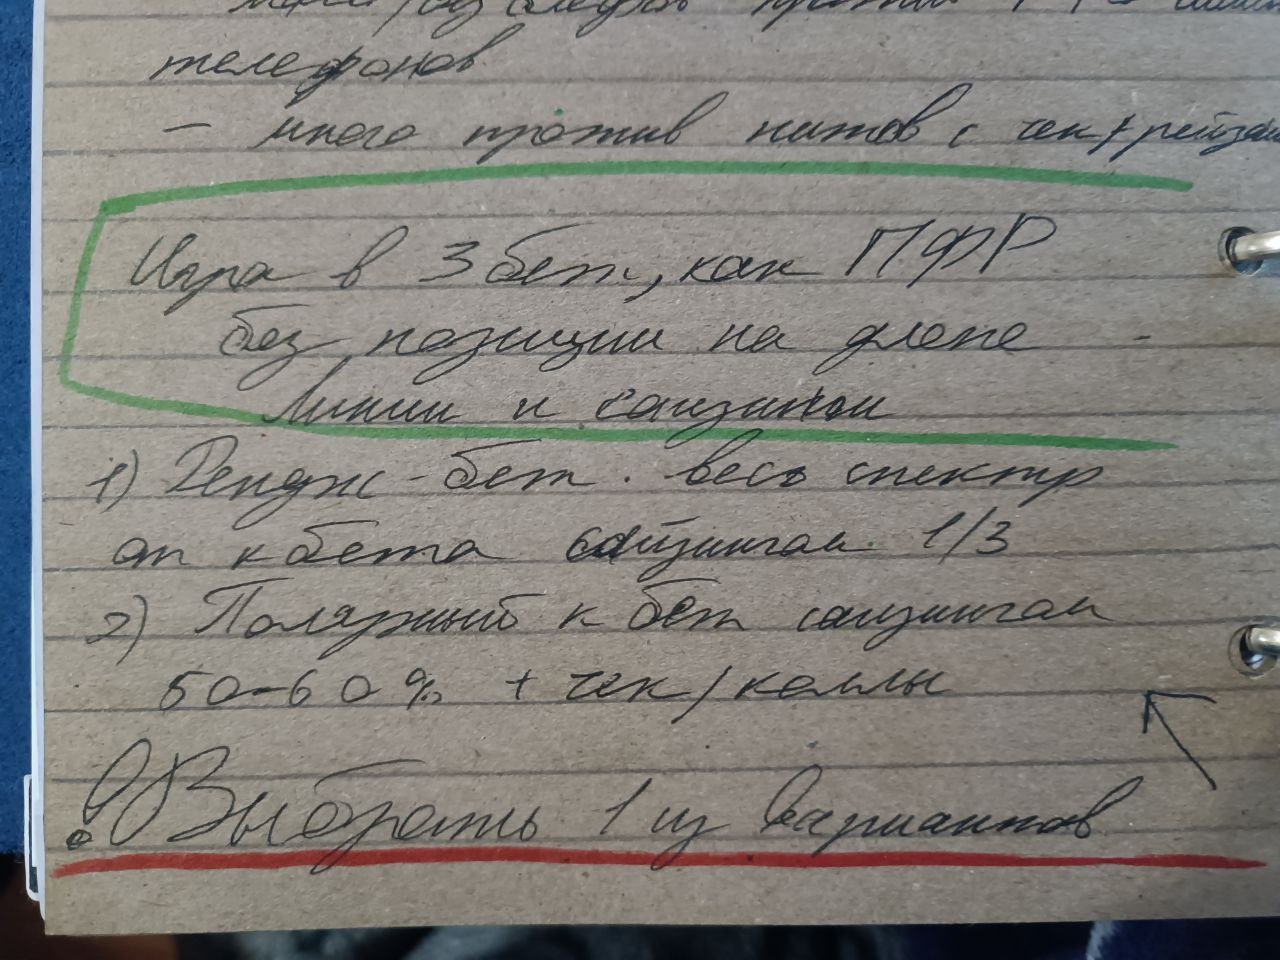 против
телефонов
- много против нитов с чек/рейзом
Игра в 3 бет, как ПФР
без позиции на флопе -
Линии и сайзинги
1) Рендж-бет. весь спектр
от к бета сайзингом 1/3
2) Полярный к бет сайзингом
50-60% + чек/коллы
! Выбрать 1 из вариантов